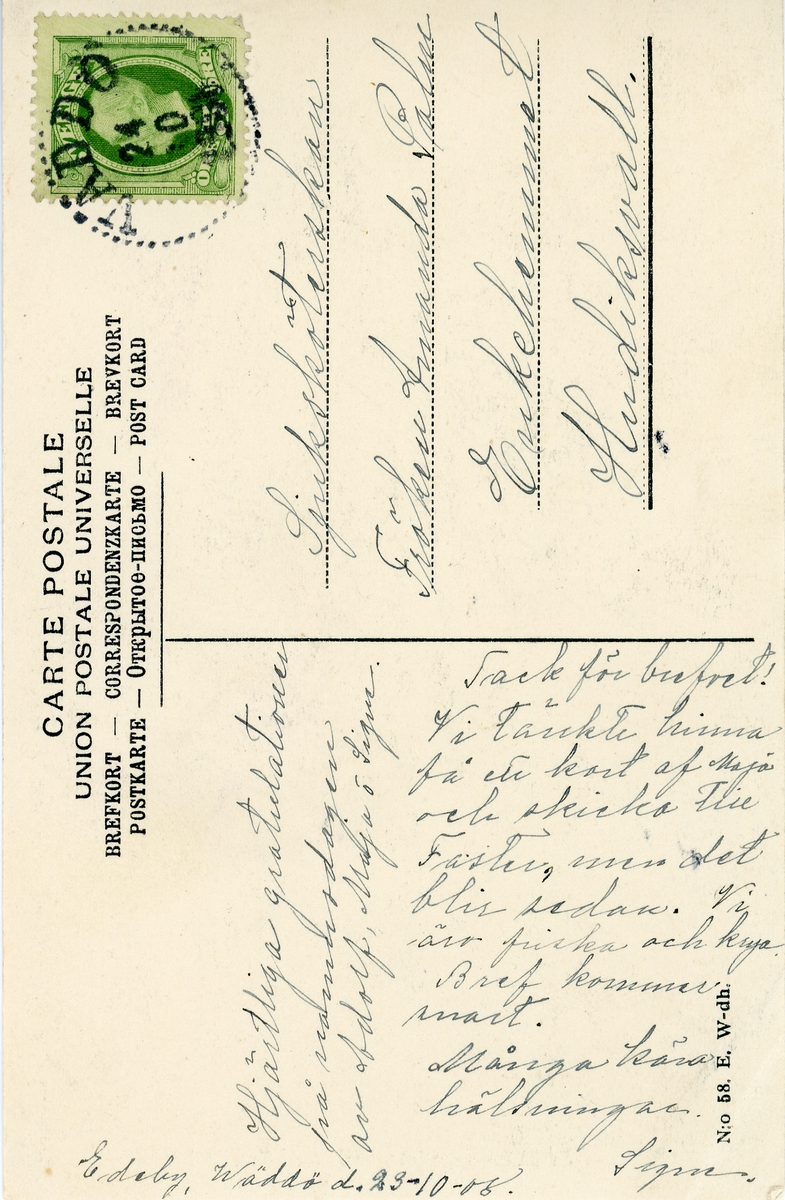 CARTE POSTALE
UNION POSTALE UNIVERSELLE
BREFKORT — CORRESPONDENZKARTE — BREVKORT
POSTKARTE — Открытое-письмо — POST CARD
VÄDDÖ
24
10
Sjuksköterskan
Fröken Amanda Palm
Enkehemmet
Hudiksvall.
Hjärtliga gratulationer
på namnsdagen
av Adolf, Maja o Signe.
Tack för brefvet!
Vi tänkte hinna
få ett kort af Maja
och skicka till
Faster, men det
blir sedan. Vi
äro friska och krya.
Bref kommer
snart.
Många kära
hälsningar.
Signe.
Edeby, Wäddö d. 23-10-05.
N:o 58. E. W-dh.